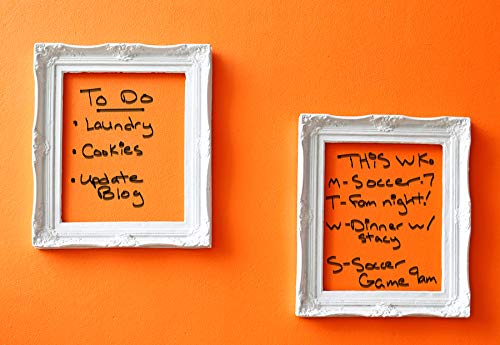 To Do
• Laundry
• Cookies
• Update
Blog
THIS WK.
M-Soccer-7
T-Fam night!
W-Dinner w/
stacy
S-Soccer
Game 9am